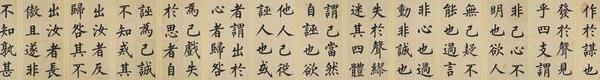 作於謀也
發於聲見
乎四支謂
非己心不
明也欲人
無己疑不
能也過言
非心也過
動非誠也
失於聲繆
迷其四體
謂己當然
自誣也欲
他人己從
誣人也或
者謂出於
心者歸咎
為己戲失
於思者自
誣為己誠
不知戒其
出汝者反
歸咎其不
出汝者長
傲且遂非
不知孰甚